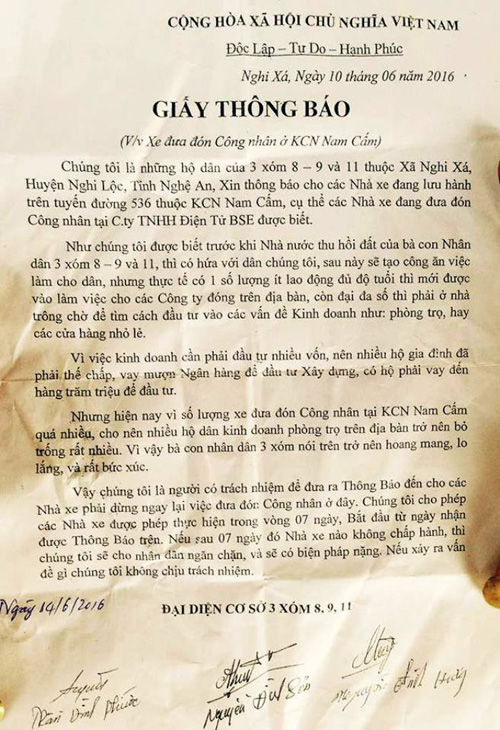 CỘNG HÒA XÃ HỘI CHỦ NGHĨA VIỆT NAM
Độc Lập – Tự Do – Hạnh Phúc
Nghi Xá, Ngày 10 tháng 06 năm 2016
GIẤY THÔNG BÁO
(V/v Xe đưa đón Công nhân ở KCN Nam Cấm)
Chúng tôi là những hộ dân của 3 xóm 8 – 9 và 11 thuộc Xã Nghi Xá,
Huyện Nghi Lộc, Tỉnh Nghệ An, Xin thông báo cho các Nhà xe đang lưu hành
trên tuyến đường 536 thuộc KCN Nam Cấm, cụ thể các Nhà xe đang đưa đón
Công nhân tại C.ty TNHH Điện Tử BSE được biết.
Như chúng tôi được biết trước khi Nhà nước thu hồi đất của bà con Nhân
dân 3 xóm 8 – 9 và 11, thì có hứa với dân chúng tôi, sau này sẽ tạo công ăn việc
làm cho dân, nhưng thực tế có 1 số lượng ít lao động đủ độ tuổi thì mới được
vào làm việc cho các Công ty đóng trên địa bàn, còn đại đa số thì phải ở nhà
trông chờ để tìm cách đầu tư vào các vấn đề Kinh doanh như: phòng trọ, hay
các cửa hàng nhỏ lẻ.
Vì việc kinh doanh cần phải đầu tư nhiều vốn, nên nhiều hộ gia đình đã
phải thế chấp, vay mượn Ngân hàng để đầu tư Xây dựng, có hộ phải vay đến
hàng trăm triệu để đầu tư.
Nhưng hiện nay vì số lượng xe đưa đón Công nhân tại KCN Nam Cấm
quá nhiều, cho nên nhiều hộ dân kinh doanh phòng trọ trên địa bàn trở nên bỏ
trống rất nhiều. Vì vậy bà con nhân dân 3 xóm nói trên trở nên hoang mang, lo
lắng, và rất bức xúc.
Vậy chúng tôi là người có trách nhiệm để đưa ra Thông Báo đến cho các
Nhà xe phải dừng ngay lại việc đưa đón Công nhân ở đây. Chúng tôi cho phép
các Nhà xe được phép thực hiện trong vòng 07 ngày, Bắt đầu từ ngày nhận
được Thông Báo trên. Nếu sau 07 ngày đó Nhà xe nào không chấp hành, thì
chúng tôi sẽ cho nhân dân ngăn chặn, và sẽ có biện pháp nặng. Nếu xảy ra vấn
đề gì chúng tôi không chịu trách nhiệm.
Ngày 14/6/2016
ĐẠI DIỆN CƠ SỞ 3 XÓM 8, 9, 11
Trần Đình Phước
Nguyễn Đình Sơn
Nguyễn Đình Hưng